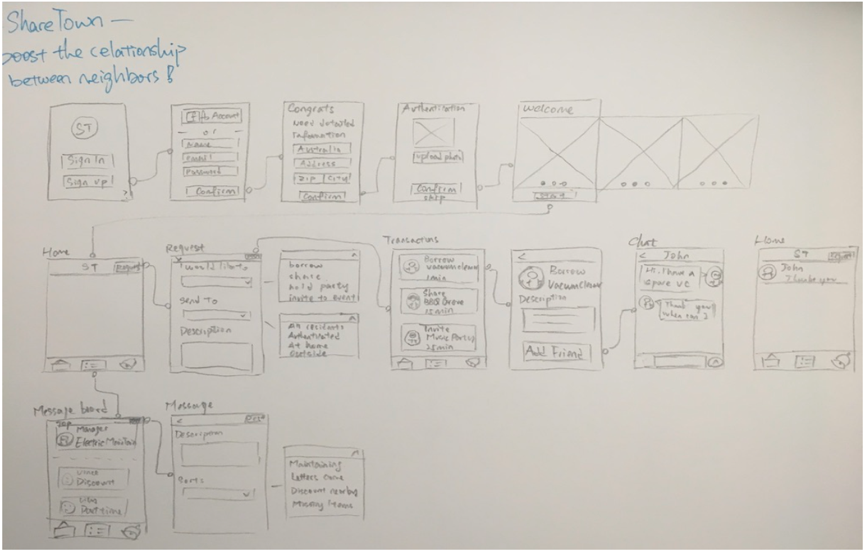 ShareTown —
boost the relationship
between neighbors!
ST
Sign In
Sign up
Account
or
Name
Email
Password
Confirm
Congrats
Need detailed
Information
Australia
Address
Zip
City
Confirm
Authentication
upload photo
Confirm
Skip
Welcome
Start
Home
ST
Request
Request
I would like to
Send To
Description
borrow
share
hold party
invite to event
All residents
Authenticated
At home
Outside
Transactions
Borrow
Vacuum cleaner
1 min
Share
15 min
Invite
Music Party
25 min
Borrow
Vacuum Cleaner
Description
Add Friend
Chat
John
Hi. I have a
spare vc
Thank you!
when can I
Home
ST
John
Message board
Manager
Discount
Part time
Message
Description
Sorts
Maintaining
Letters Come
Discount nearby
Missing items